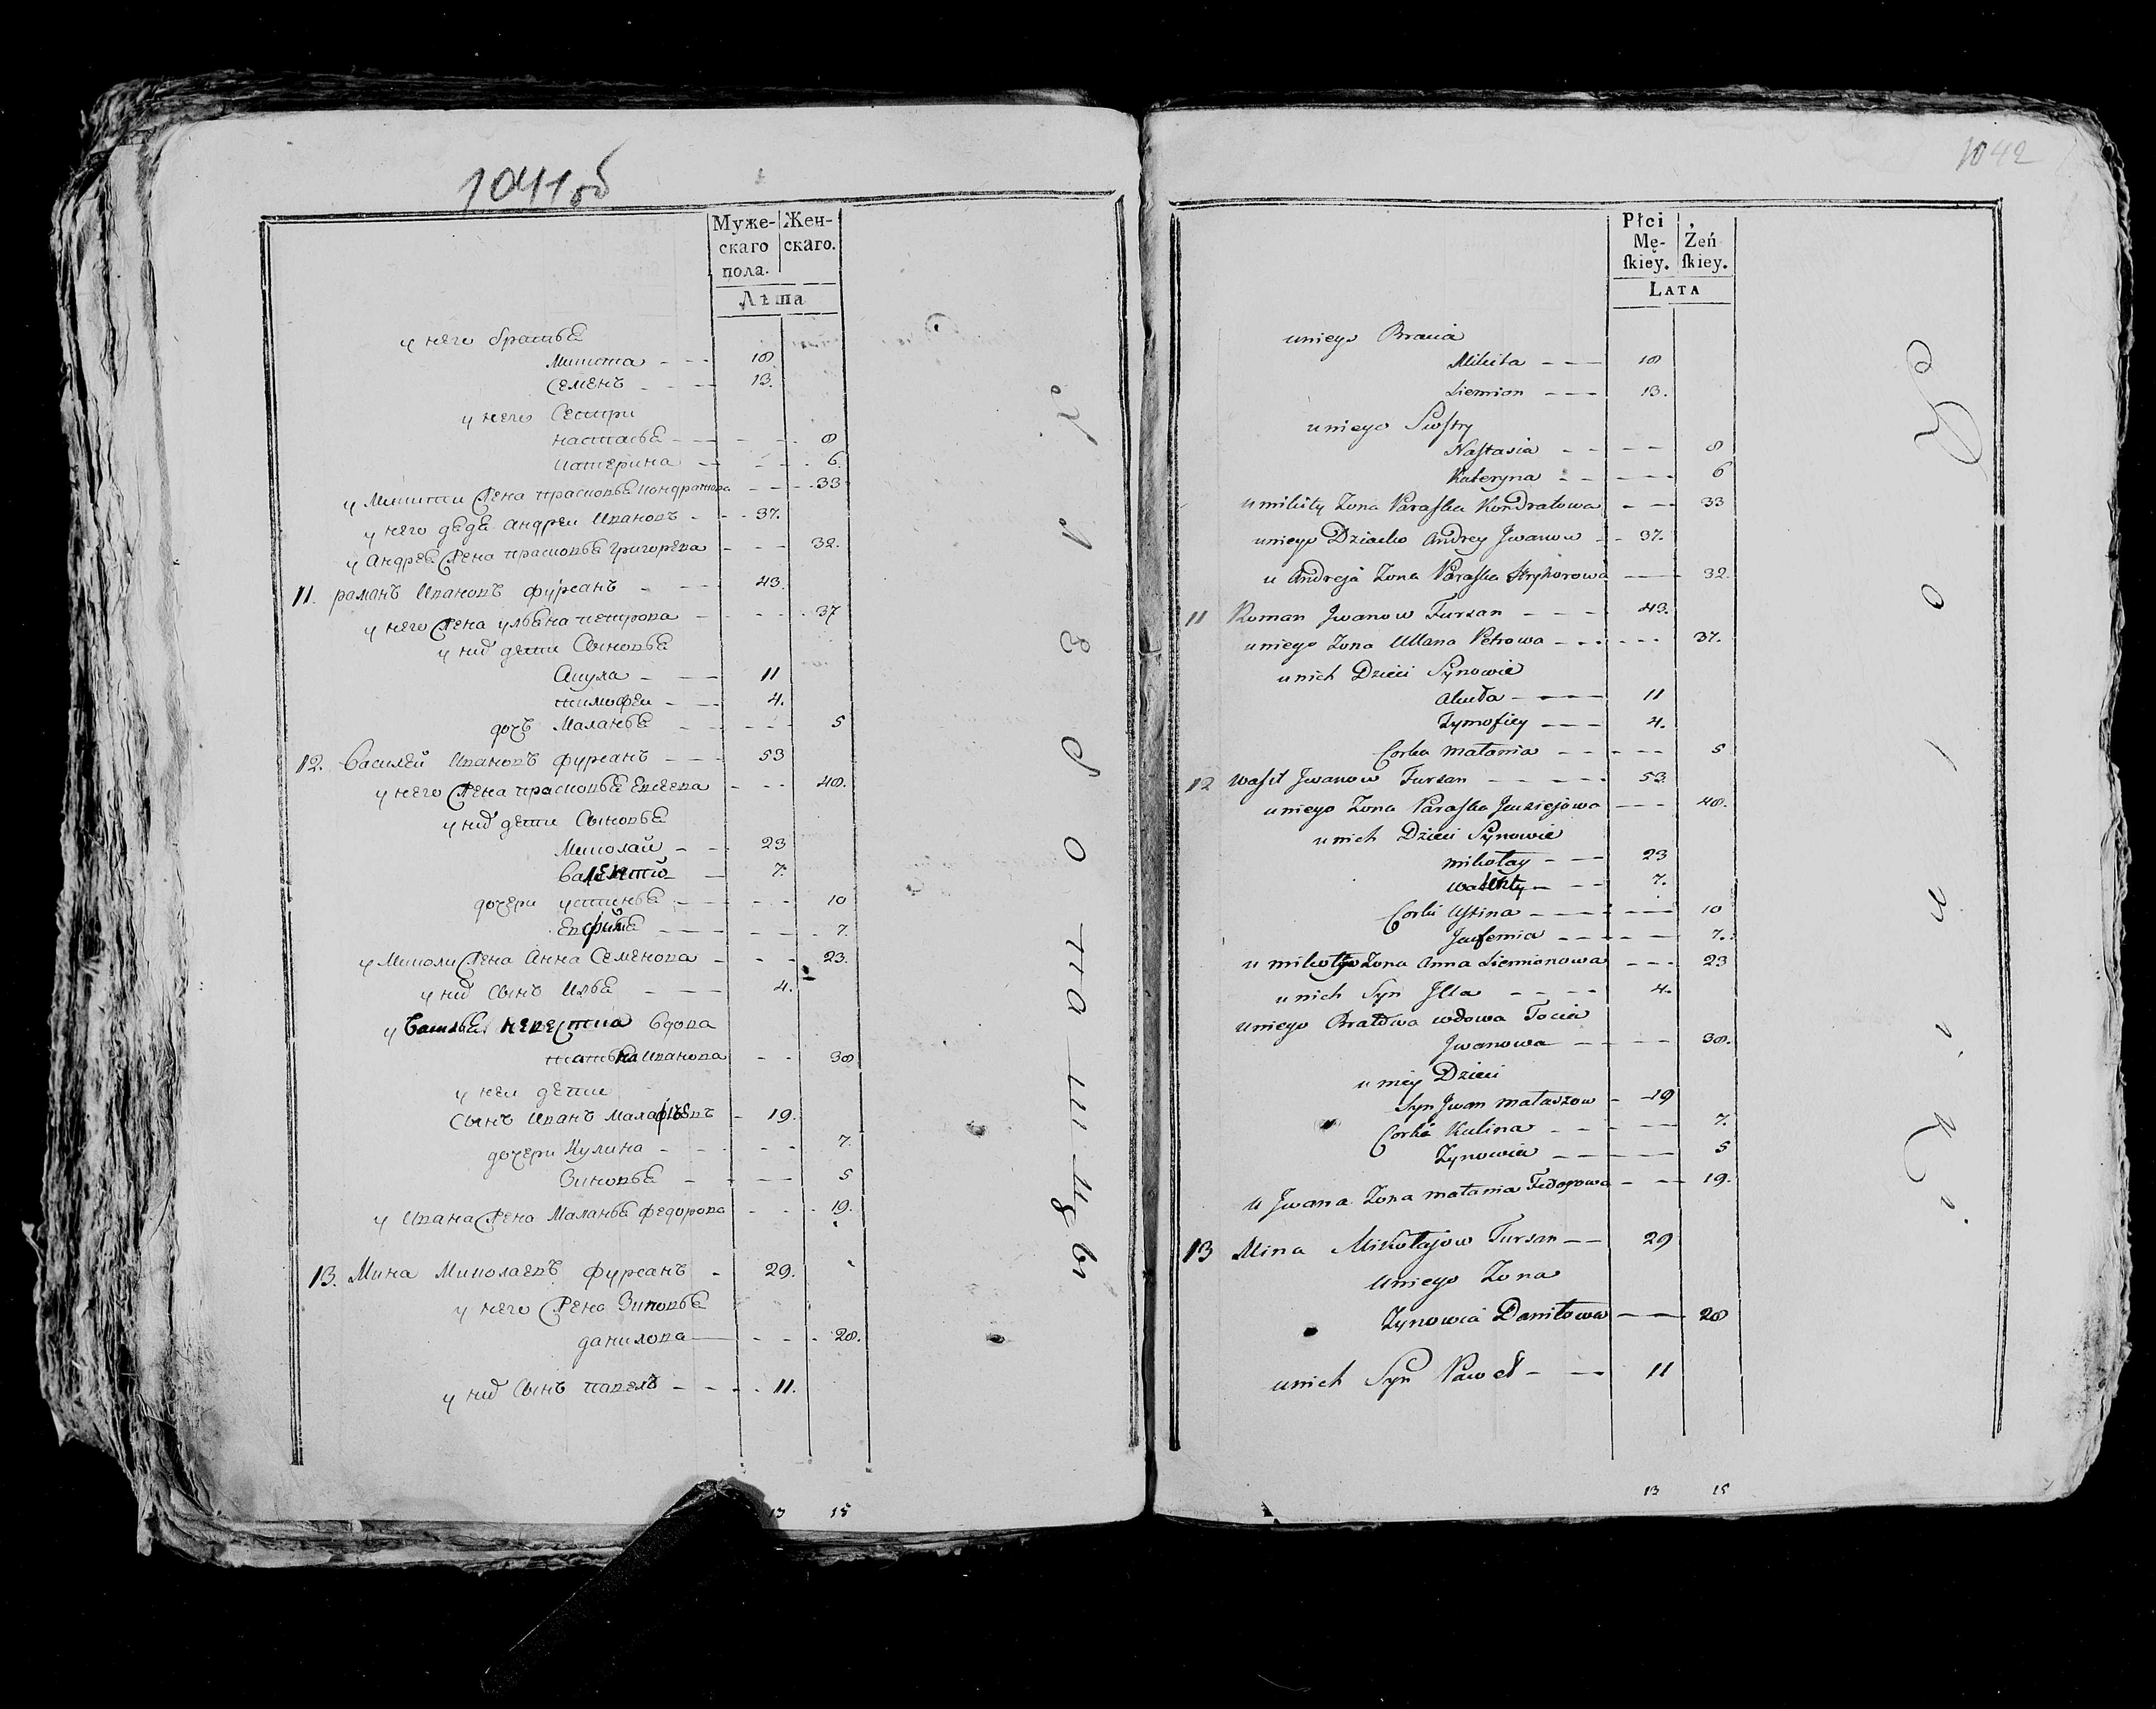 1041об
Муже- Жен-
скаго скаго.
пола.
Лѣта
у него братья
Микита - - - 18
Семенъ - - - 13.
у него Сестри
настасья - - - 8
Катерина - - - 6.
у Микити Жена прасковья Кондратова - - - 33
у него дядя андреи Ивановъ - - - 37.
у Андрея Жена прасковья Григорева - - - 32.
11. романъ Ивановъ фурсанъ - - - 43.
у него Жена ульяна петрова - - - 37
у них дети Сыновья
Акула - - - 11
тимофеи - - - 4.
дочъ Маланья - - - 5
12. Василей Ивановъ фурсанъ - - - 53
у него Жена прасковья Евсеева - - - 48.
у них дети Сыновья
Миколай - - - 23
Валентий - - - 7.
дочери устинья - - - 10
Евфимья - - - 7.
у Миколи Жена Анна Семенова - - - 23.
у них Сынъ Илья - - - 4.
у Василья невестка вдова
татьяна Иванова - - - 38
у неи дети
Сынъ Иванъ Малафѣевъ - 19.
дочери Кулина - - - 7.
Зиновья - - - 5
у Ивана Жена Маланья федорова - - - 19.
13. Мина Миколаевъ фурсанъ - 29.
у него Жена Зиновья
данилова - - - 28.
у них Сынъ павелъ - - - 11.
13 15
1042
Płci
Mę- Żeń
skiey. skiey.
LATA
uniego Bracia
Mikita - - - 18
Siemion - - - 13.
uniego Siostry
Nastasia - - - 8
Kateryna - - - 6
u mikity Zona Paraska Kondratowa - - - 33
uniego Dziadko Andrey Jwanow - - 37.
u Andreja Zona Paraska Hryhorowa - - - 32.
11 Roman Jwanow Fursan - - - 43.
uniego Zona Ullana Petrowa - - - 37.
unich Dzieci Synowie
Akuła - - - 11
Tymofiey - - - 4.
Corka małania - - - 5
12 wasil Jwanow Fursan - - - 53
uniego Zona Paraska Jeusiejowa - - - 48.
unich Dzieci Synowie
mikołay - - - 23
walenty - - - 7.
Corki Ustina - - - 10
Jeufemia - - - 7.
u mikołaja Zona Anna Siemionowa - - - 23
unich Syn Jlla - - - 4.
uniego Bratowa wdowa Tocia
Jwanowa - - - 38.
u niey Dzieci
Syn Jwan małaszow - 19
Corki Kulina - - - 7.
Zynowia - - - 5
u Jwana Zona małania Fedorowa - - - 19.
13 Mina Mikołajow Fursan - - 29
uniego Zona
Zynowia Daniłowa - - - 28
unich Syn Paweł - - - 11
13 15